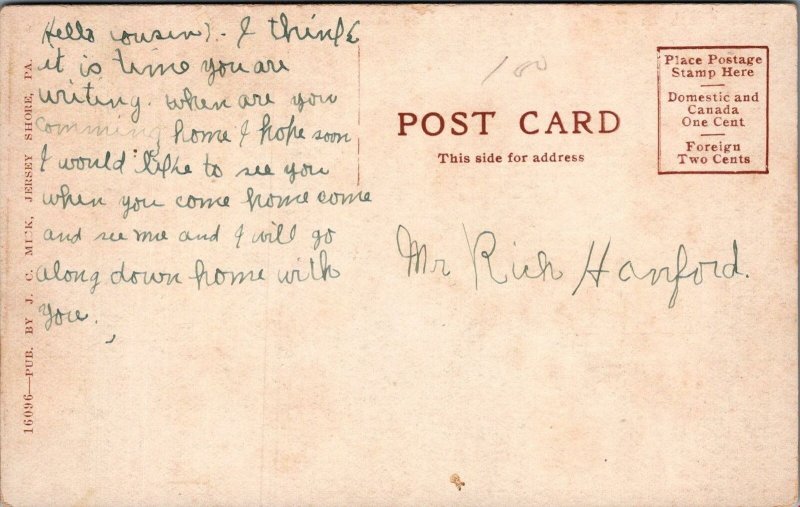 Hello cousin). - I think
it is time you are
writing. when are you
comming home I hope soon
I would like to see you
when you come home come
and see me and I will go
along down home with
you.
16096—PUB. BY J. C. MUK, JERSEY SHORE, PA.
100
POST CARD
This side for address
Place Postage
Stamp Here
Domestic and
Canada
One Cent
Foreign
Two Cents
Mr Rich Hanford.